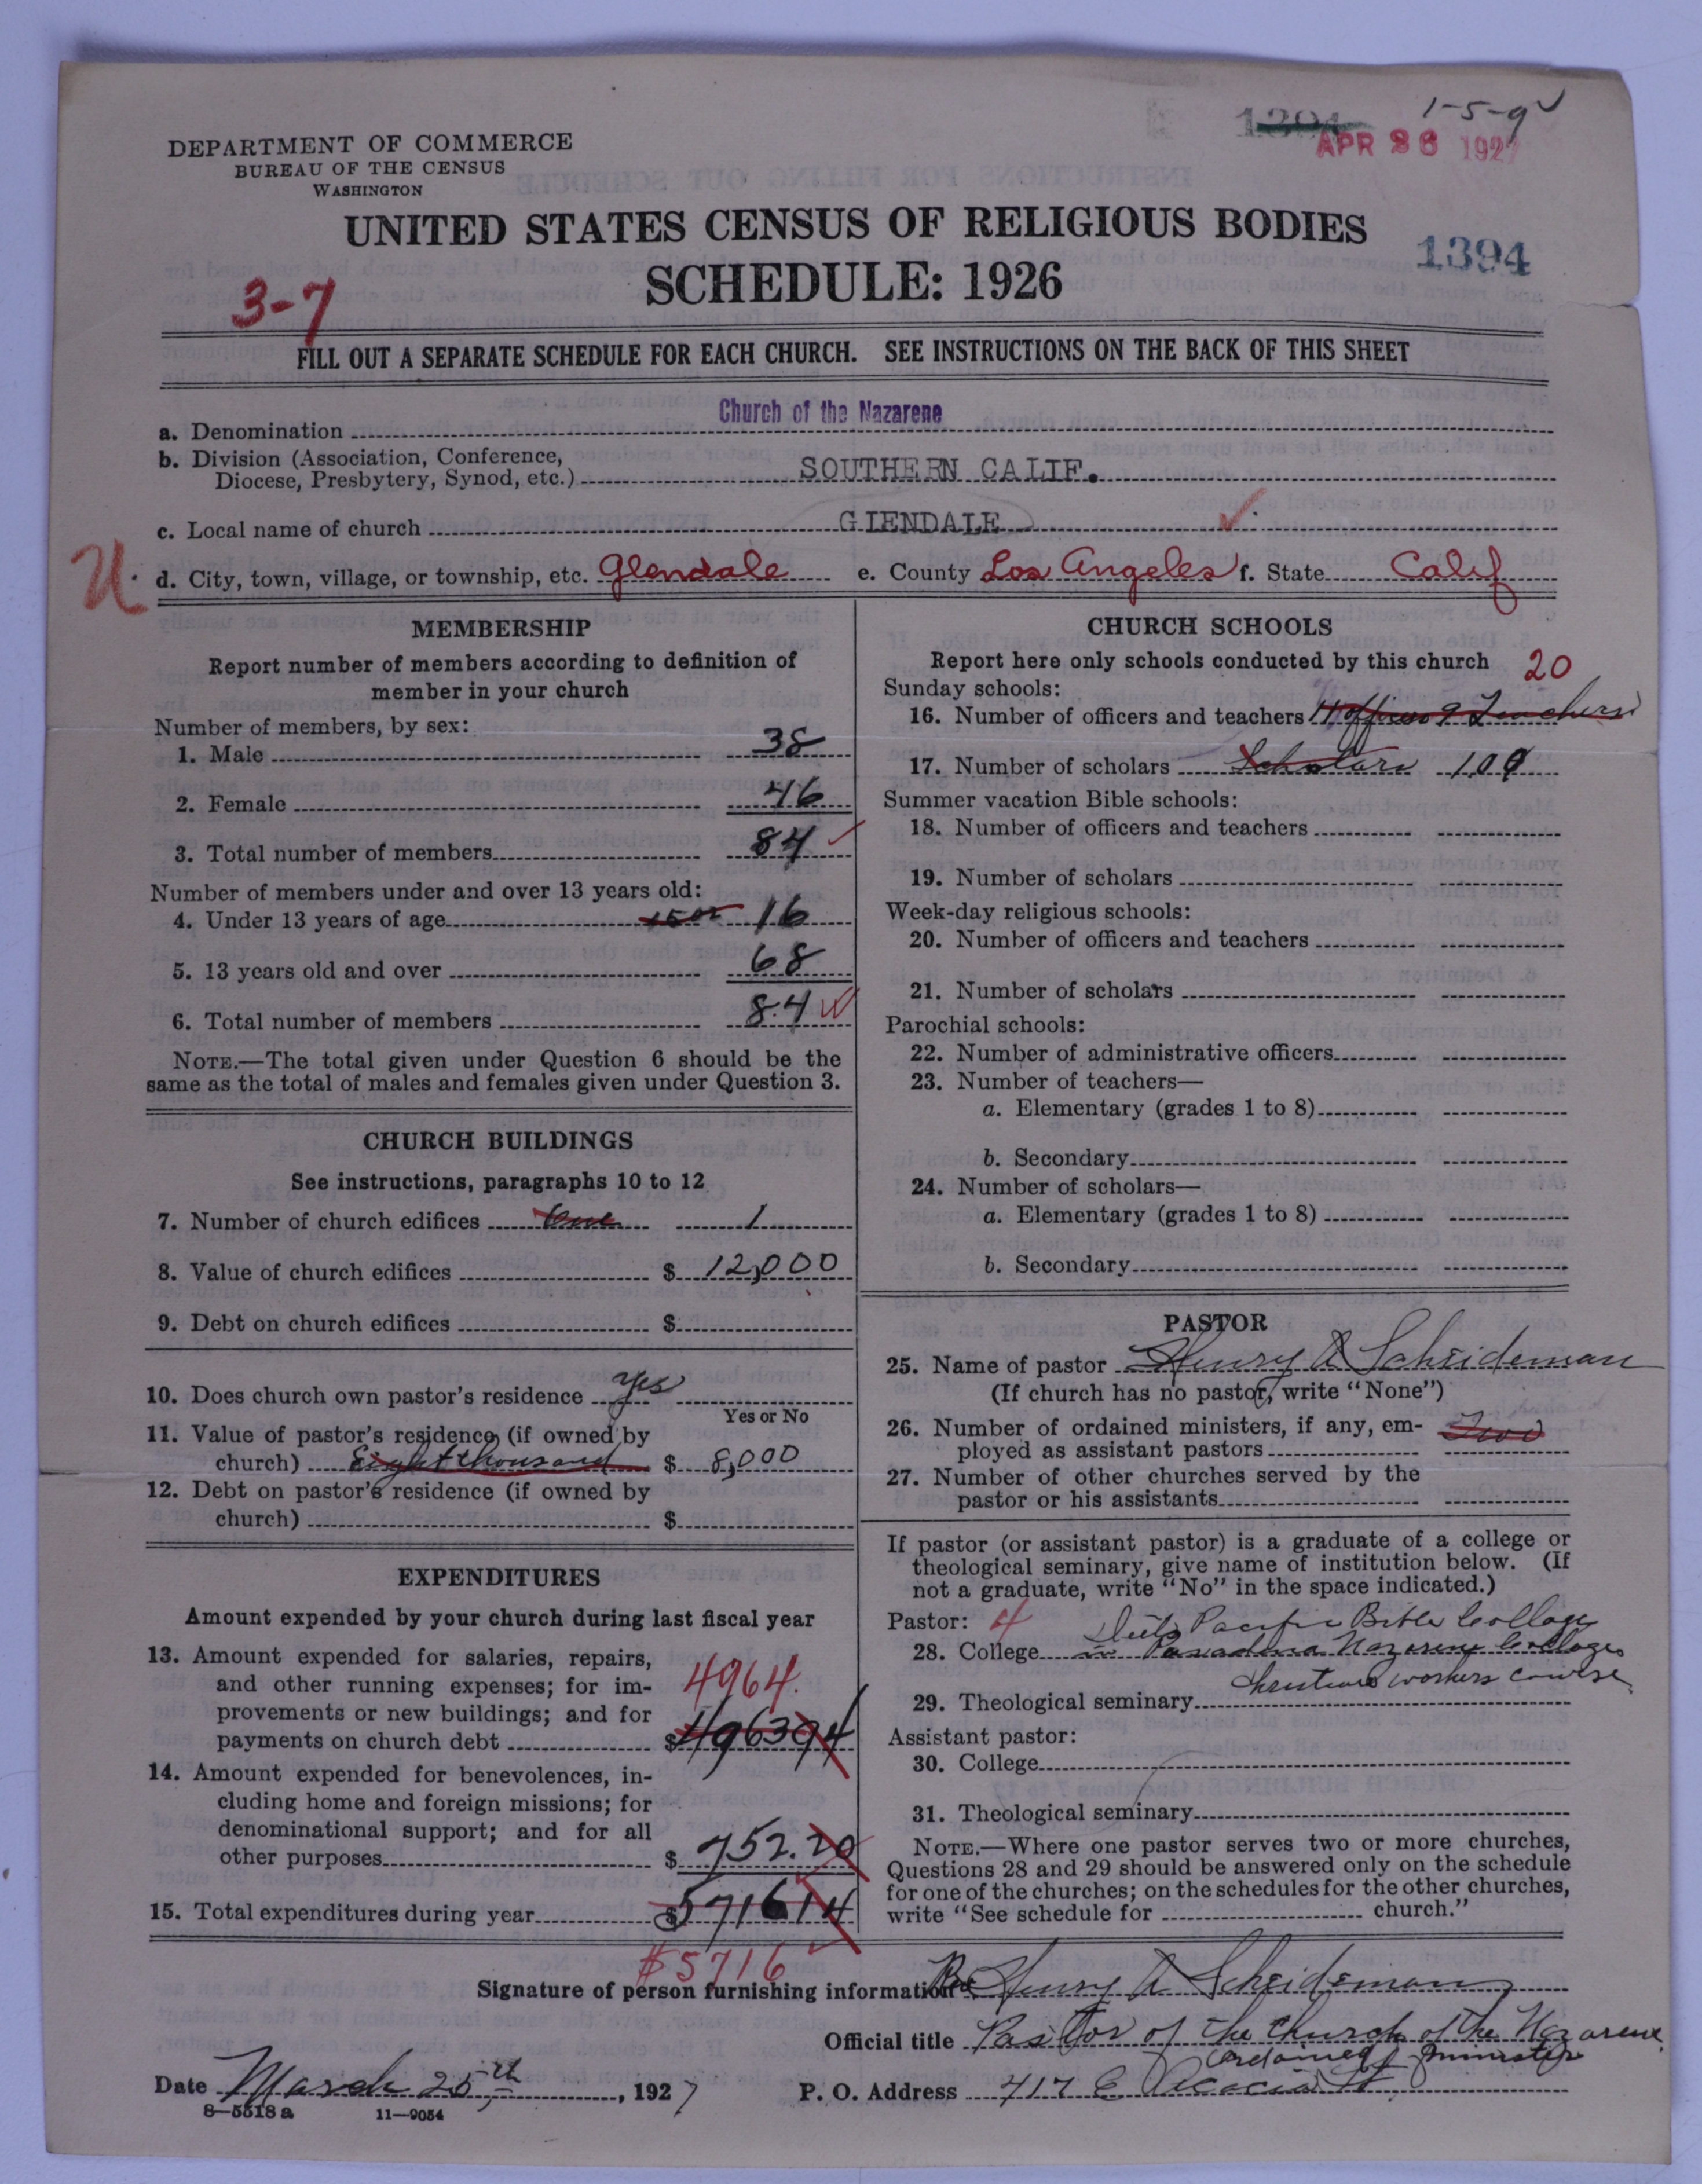 1394
1-5-9
APR 26 1927
DEPARTMENT OF COMMERCE
BUREAU OF THE CENSUS
WASHINGTON
UNITED STATES CENSUS OF RELIGIOUS BODIES
1394
SCHEDULE: 1926
3-7
FILL OUT A SEPARATE SCHEDULE FOR EACH CHURCH. SEE INSTRUCTIONS ON THE BACK OF THIS SHEET
a. Denomination Church of the Nazarene
b. Division (Association, Conference,
Diocese, Presbytery, Synod, etc.) SOUTHERN CALIF.
c. Local name of church GLENDALE
U. d. City, town, village, or township, etc. Glendale e. County Los Angeles f. State Calif
MEMBERSHIP
Report number of members according to definition of
member in your church
Number of members, by sex:
1. Male 38
2. Female 46
3. Total number of members 84
Number of members under and over 13 years old:
4. Under 13 years of age 15 or 16
5. 13 years old and over 68
6. Total number of members 84
NOTE.—The total given under Question 6 should be the
same as the total of males and females given under Question 3.
CHURCH BUILDINGS
See instructions, paragraphs 10 to 12
7. Number of church edifices One 1
8. Value of church edifices $ 12,000
9. Debt on church edifices $
10. Does church own pastor's residence Yes
Yes or No
11. Value of pastor's residence (if owned by
church) Eight thousand $ 8,000
12. Debt on pastor's residence (if owned by
church) $
EXPENDITURES
Amount expended by your church during last fiscal year
13. Amount expended for salaries, repairs,
and other running expenses; for im- 4964.
provements or new buildings; and for
payments on church debt $ 496394
14. Amount expended for benevolences, in-
cluding home and foreign missions; for
denominational support; and for all
other purposes $ 752.20
15. Total expenditures during year $ 571614
$5716
CHURCH SCHOOLS
Report here only schools conducted by this church 20
Sunday schools:
16. Number of officers and teachers 11 officers 9 Teachers
17. Number of scholars Scholars 109
Summer vacation Bible schools:
18. Number of officers and teachers
19. Number of scholars
Week-day religious schools:
20. Number of officers and teachers
21. Number of scholars
Parochial schools:
22. Number of administrative officers
23. Number of teachers—
a. Elementary (grades 1 to 8)
b. Secondary
24. Number of scholars—
a. Elementary (grades 1 to 8)
b. Secondary
PASTOR
25. Name of pastor Henry A Scheideman
(If church has no pastor, write "None")
26. Number of ordained ministers, if any, em- Two
ployed as assistant pastors
27. Number of other churches served by the
pastor or his assistants
If pastor (or assistant pastor) is a graduate of a college or
theological seminary, give name of institution below. (If
not a graduate, write "No" in the space indicated.)
Pastor: 4 Pacific Bible College
28. College in Pasadena Nazarene College
Christian workers course
29. Theological seminary
Assistant pastor:
30. College
31. Theological seminary
NOTE.—Where one pastor serves two or more churches,
Questions 28 and 29 should be answered only on the schedule
for one of the churches; on the schedules for the other churches,
write "See schedule for church."
Signature of person furnishing information Rev Henry A Scheideman
Official title Pastor of the Church of the Nazarene
ordained minister
Date March 25th, 1927 P. O. Address 717 E Acacia St
8—5518 a 11—9054